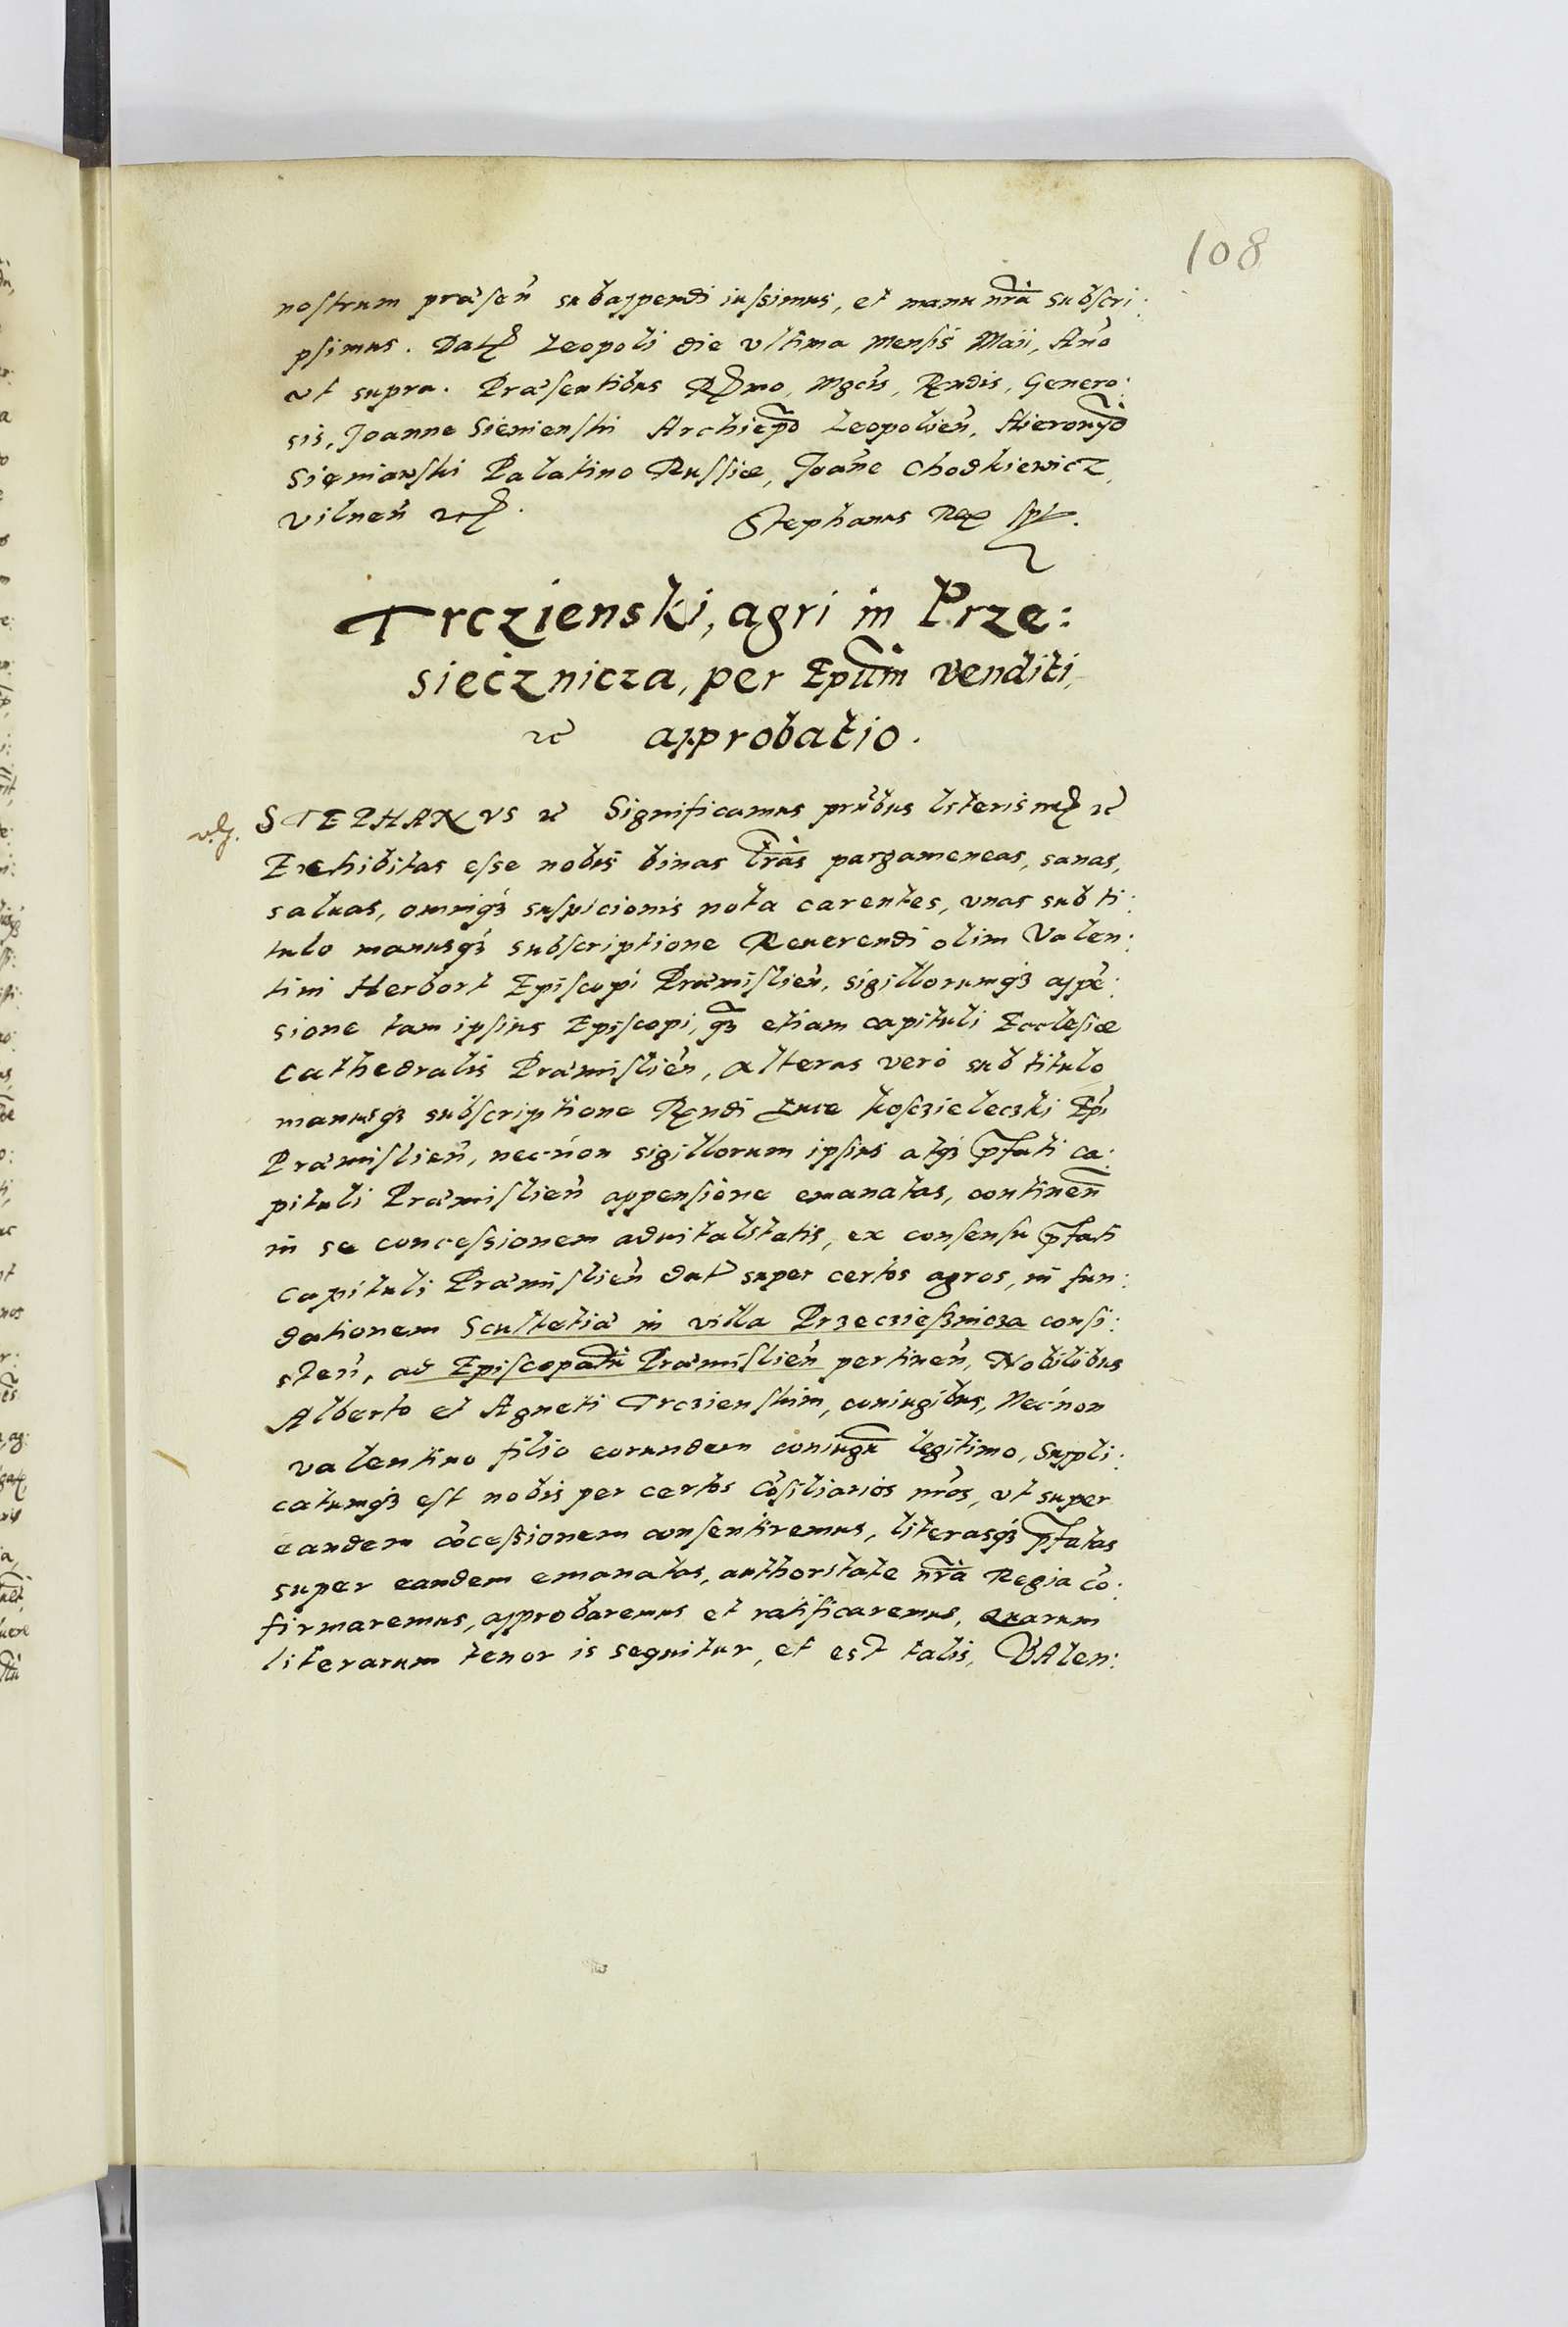 108
nostrum præsen̄ subappendi iussimus, et manu nr̄a subscri:
psimus. Dat̄ Leopoli die vltima Mensis Maii, An̄o
ut supra. Præsentibus R̄mo, Mgcis, Rndis, Genero:
sis, Joanne Sienienski Archiep̄o Leopolien̄, Hieronȳo
Sieniawski Palatino Russiæ, Joan̄e Chodkiewicz,
Vilnen̄ etc.
Stephanus Rex spt.
Trczienski, agri in Prze:
siecznicza, per Epūm venditi,
etc approbatio.
STEPHANVS etc Significamus prn̄tibus literis nr̄is etc
Exhibitas esse nobis binas lr̄as pargameneas, sanas,
saluas, omniq3 suspicionis nota carentes, vnas sub ti:
tulo manusq3 subscriptione Reuerendi olim Valen:
tini Herbort Episcopi Præmislien̄, sigillorumq3 appē:
sione tam ipsius Episcopi, q̄3 etiam capituli Ecclesiæ
Cathedralis Præmislien̄, alteras verò sub titulo
manusq3 subscriptione Rendi Lucæ Kosczieleczki Ep̄i
Præmislien̄, nec-non sigillorum ipsius atq3 p̄fati ca:
pituli Præmislien̄ appensione emanatas, continen̄
in se concessionem aduitalitatis, ex consensu p̄fati
capituli Præmislien̄ dat̄ super certos agros, in fun:
dationem Scultetiæ in villa Przeczießnicza consi:
sten̄, ad Episcopatū Præmislien̄ pertinen̄, Nobilibus
Alberto et Agneti Trczienskim, coniugibus, Nec-non
Valentino filio eorundem coniugū legitimo, Suppli:
catumq3 est nobis per certos Cōsiliarios nr̄os, vt super
eandem cōcessionem consentiremus, literasq3 p̄fatas
super eandem emanatas, authoritate nr̄a Regia cō:
firmaremus, approbaremus et ratificaremus, Quarum
literarum tenor is sequitur, et est talis, VAlen: